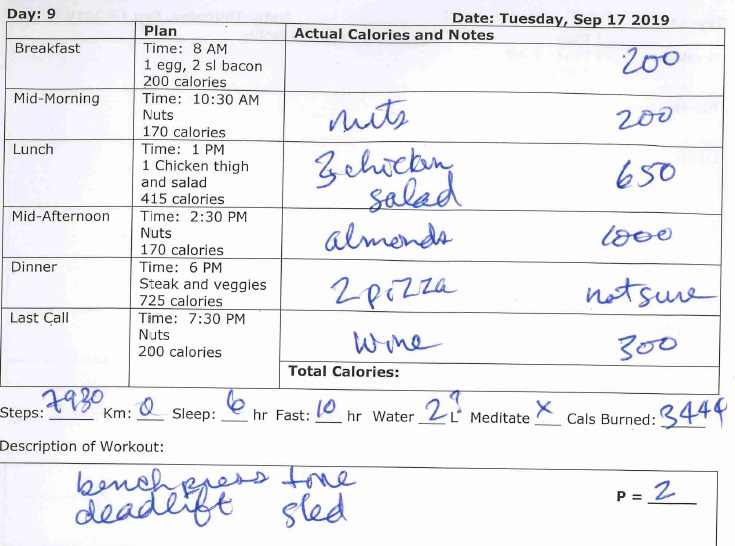 Day: 9
Date: Tuesday, Sep 17 2019
Plan
Actual Calories and Notes
Breakfast
Time: 8 AM
1 egg, 2 sl bacon
200 calories
200
Mid-Morning
Time: 10:30 AM
Nuts
170 calories
nuts
200
Lunch
Time: 1 PM
1 Chicken thigh
and salad
415 calories
3 chicken
salad
650
Mid-Afternoon
Time: 2:30 PM
Nuts
170 calories
almonds
1000
Dinner
Time: 6 PM
Steak and veggies
725 calories
2 pizza
not sure
Last Call
Time: 7:30 PM
Nuts
200 calories
wine
300
Total Calories:
Steps: 7930 Km: 0 Sleep: 6 hr Fast: 10 hr Water 2? L Meditate X Cals Burned: 3444
Description of Workout:
bench press
deadlift sled
P = 2